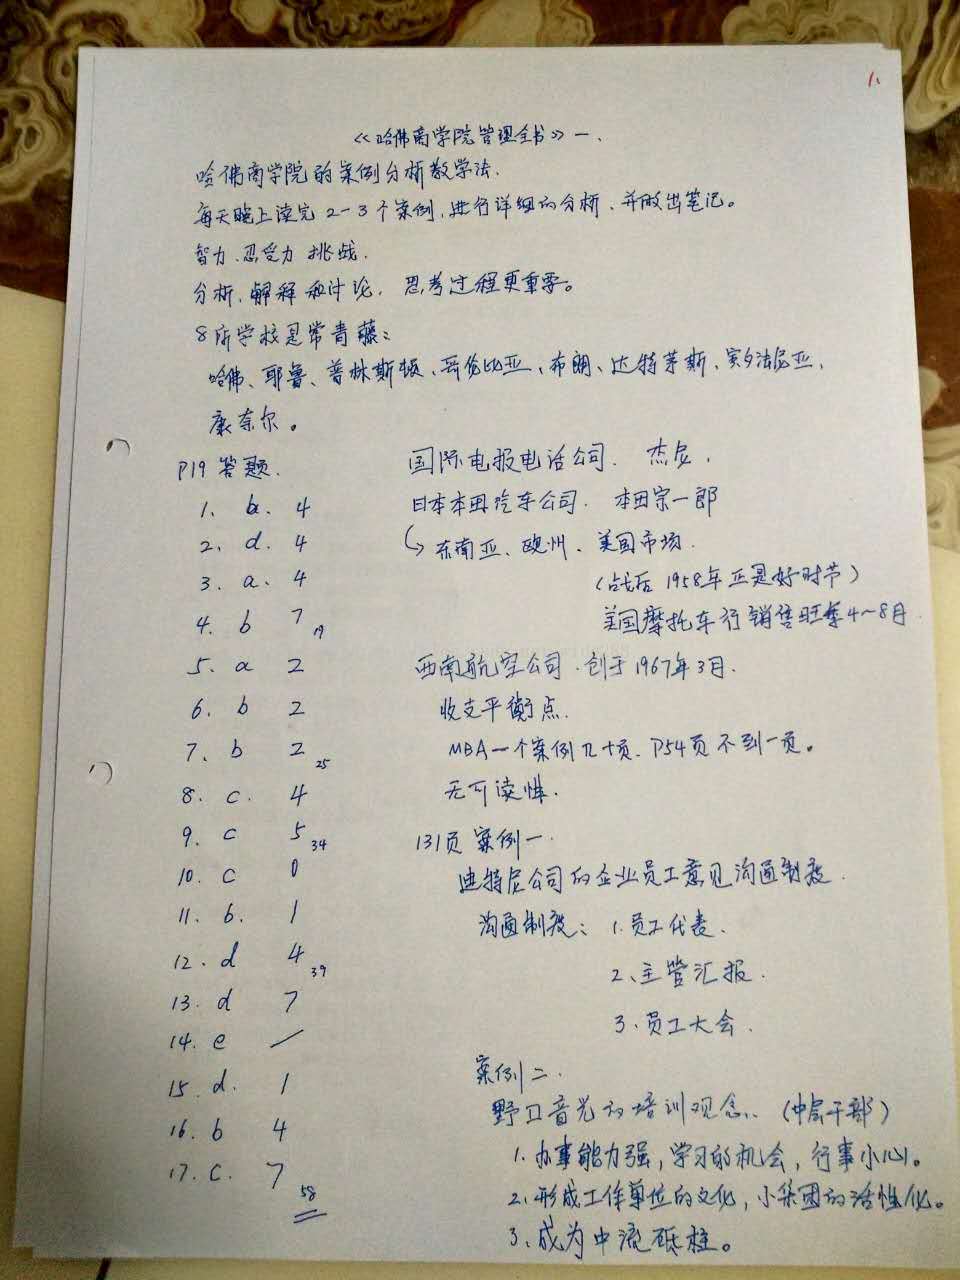 1.
《哈佛商学院管理全书》一、
哈佛商学院的案例分析教学法.
每天晚上读完2-3个案例,进行详细的分析.并做出笔记。
智力、忍受力挑战.
分析,解释和讨论, 思考过程更重要。
8所学校是常青藤:
哈佛、耶鲁、普林斯顿、哥伦比亚、布朗、达特茅斯、宾夕法尼亚,
康奈尔。
P19答题.
1. b. 4
2. d. 4
3. a. 4
4. b 7 19
5. a 2
6. b 2
7. b 2 25
8. c. 4
9. c 5 34
10. c 0
11. b. 1
12. d 4 39
13. d 7
14. e /
15. d. 1
16. b 4
17. c. 7 58
国际电报电话公司. 杰尼,
日本本田汽车公司. 本田宗一郎
↳东南亚、欧洲、美国市场.
(战后1958年正是好时节)
美国摩托车行销售旺季4~8月
西南航空公司.创于1967年3月.
收支平衡点.
MBA一个案例几十页.P54页不到一页。
无可读性.
131页案例一.
迪特尼公司的企业员工意见沟通制度.
沟通制度: 1.员工代表.
2、主管汇报.
3.员工大会.
案例二.
野口吉光的培训观念.. (中层干部)
1.办事能力强,学习的机会,行事小心。
2.形成工作单位的文化,小集团的活性化。
3、成为中流砥柱。